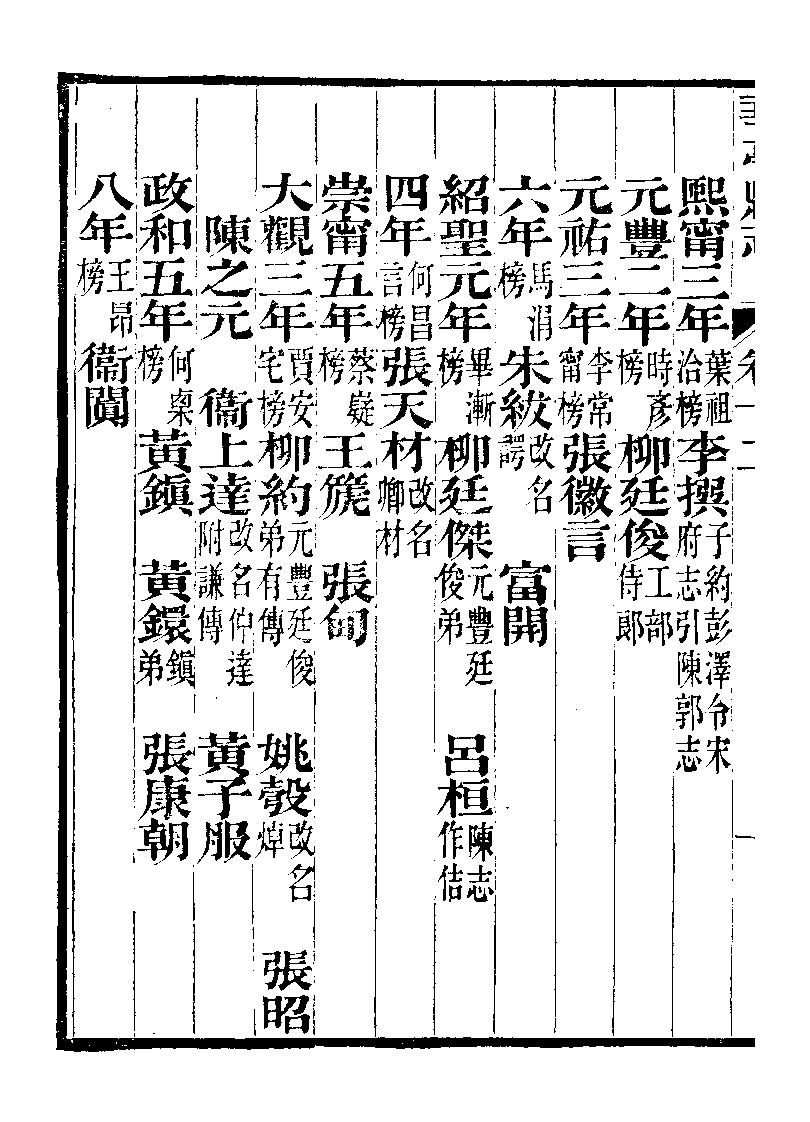 華亭縣志 卷十二 一
熙甯三年 葉祖洽榜 李撰 子約彭澤令宋府志引陳郭志
元豐二年 時彥榜 柳廷俊 工部侍郎
元祐三年 李常甯榜 張徽言
六年 馬涓榜 朱紱 改名諤 富開
紹聖元年 畢漸榜 柳廷傑 元豐廷俊弟 呂桓 陳志作佶
四年 何昌言榜 張天材 改名卿材
崇甯五年 蔡嶷榜 王篪 張甸
大觀三年 賈安宅榜 柳約 元豐廷俊弟有傳 姚瑴 改名焯 張昭
陳之元 衞上達 改名仲達附謙傳 黃子服
政和五年 何㮚榜 黃鎮 黃鐶 鎮弟 張康朝
八年 王昂榜 衞闐